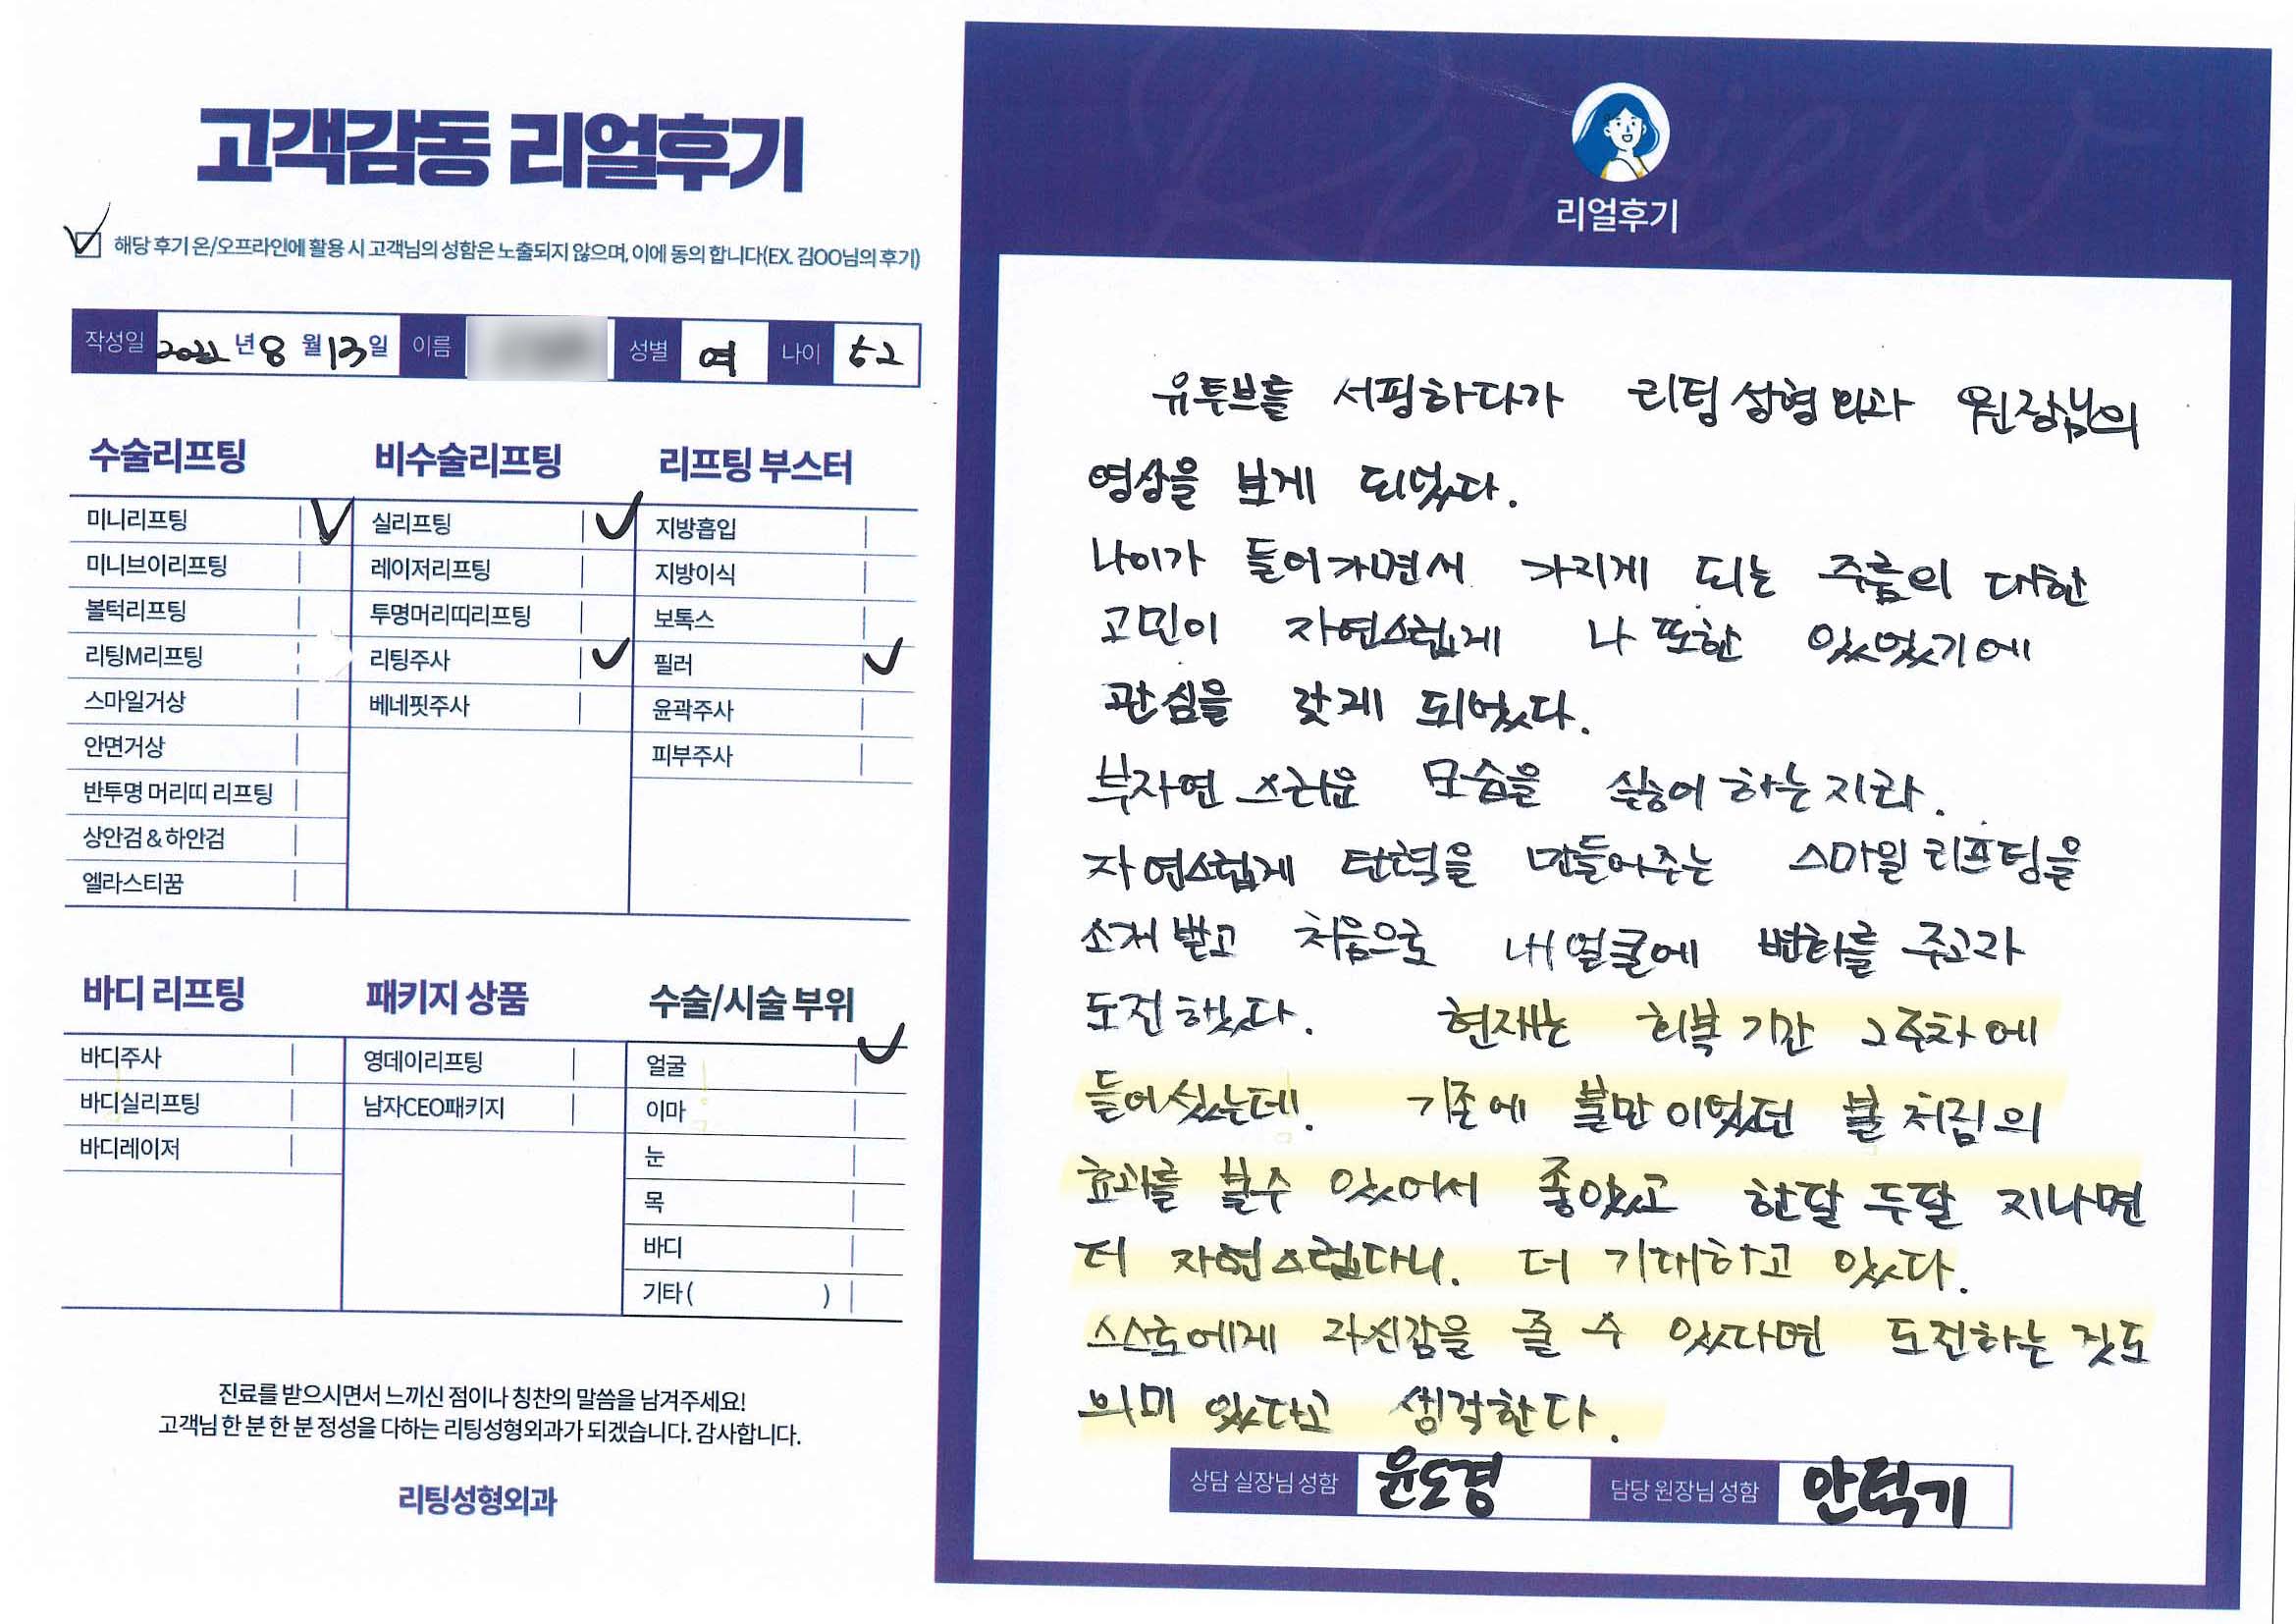 고객감동 리얼후기
해당 후기 온/오프라인에 활용 시 고객님의 성함은 노출되지 않으며, 이에 동의 합니다(EX. 김OO님의 후기)
작성일 2022 년 8 월 13 일 이름 성별 여 나이 52
수술리프팅
미니리프팅
미니브이리프팅
볼턱리프팅
리팅M리프팅
스마일거상
안면거상
반투명 머리띠 리프팅
상안검 & 하안검
엘라스티꿈
비수술리프팅
실리프팅
레이저리프팅
투명머리띠리프팅
리팅주사
베네핏주사
리프팅 부스터
지방흡입
지방이식
보톡스
필러
윤곽주사
피부주사
바디 리프팅
바디주사
바디실리프팅
바디레이저
패키지 상품
영데이리프팅
남자CEO패키지
수술/시술 부위
얼굴
이마
눈
목
바디
기타 ( )
진료를 받으시면서 느끼신 점이나 칭찬의 말씀을 남겨주세요!
고객님 한 분 한 분 정성을 다하는 리팅성형외과가 되겠습니다. 감사합니다.
리팅성형외과
Review
리얼후기
유투브를 서핑하다가 리팅성형외과 원장님의
영상을 보게 되었다.
나이가 들어가면서 가지게 되는 주름의 대한
고민이 자연스럽게 나 또한 있었기에
관심을 갖게 되었다.
부자연스러운 모습을 싫어하는지라.
자연스럽게 탄력을 만들어주는 스마일리프팅을
소개받고 처음으로 내 얼굴에 변화를 주고자
도전했다. 현재는 회복기간 2주차에
들어섰는데. 기존에 불만이었던 볼처짐의
효과를 볼수 있어서 좋았고 한달 두달 지나면
더 자연스럽다니. 더 기대하고 있다.
스스로에게 자신감을 줄 수 있다면 도전하는 것도
의미 있다고 생각한다.
상담 실장님 성함 윤도경 담당 원장님 성함 안덕기